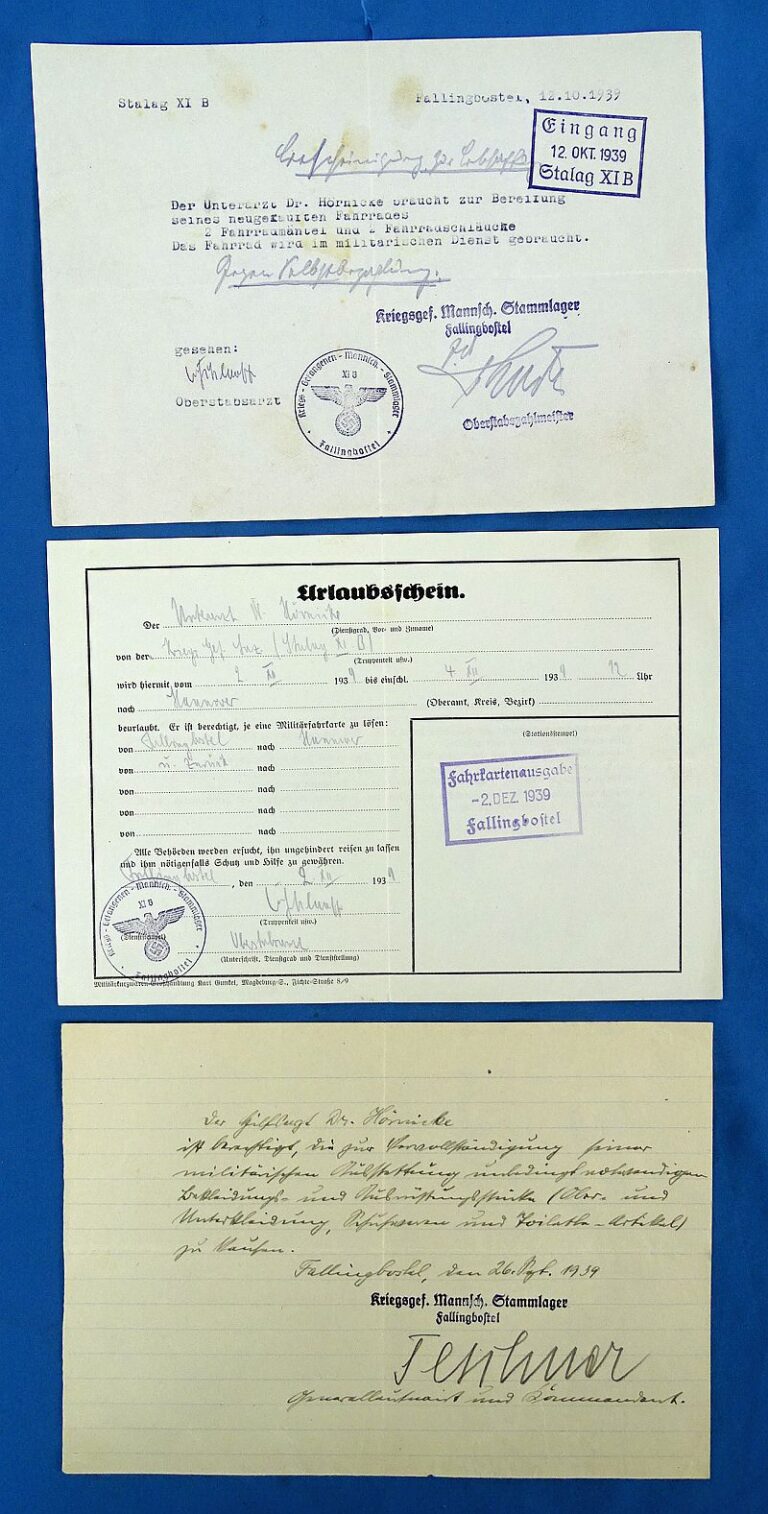 Stalag XI B
Fallingbostel, 12.10.1939
Eingang
12. OKT. 1939
Stalag XI B
Bescheinigung zur
Der Unterarzt Dr. Hörnicke braucht zur Bereifung
seines neugekauften Fahrrades
2 Fahrradmäntel und 2 Fahrradschläuche
Das Fahrrad wird im militärischen Dienst gebraucht.
Gegen Selbstbezahlung.
Kriegsgef. Mannsch. Stammlager
Fallingbostel
gesehen:
Oberstabsarzt
Kriegs-Gefangenen-Mannsch.-Stammlager
XI B
Fallingbostel
Oberstabszahlmeister
Urlaubsschein.
Der Unterarzt Hörnicke
(Dienstgrad, Vor- und Zuname)
von der Kriegs Gef. (Stalag XI B)
(Truppenteil usw.)
wird hiermit, vom 2 XII 1939 bis einschl. 4 XII 1939 12 Uhr
nach Hannover (Oberamt, Kreis, Bezirk)
beurlaubt. Er ist berechtigt, je eine Militärfahrkarte zu lösen:
von Fallingbostel nach Hannover
von u. zurück nach
von nach
von nach
von nach
Alle Behörden werden ersucht, ihn ungehindert reisen zu lassen
und ihm nötigenfalls Schutz und Hilfe zu gewähren.
Fallingbostel, den 2 XII 1939
(Truppenteil usw.)
(Dienststempel)
Oberstabsarzt
(Unterschrift, Dienstgrad und Dienststellung)
Kriegs-Gefangenen-Mannsch.-Stammlager
XI B
Fallingbostel
(Stationsstempel)
Fahrkartenausgabe
-2. DEZ. 1939
Fallingbostel
Militärkurzwaren-Großhandlung Karl Gunkel, Magdeburg-S., Fichte-Straße 8/9
Der Hilfsarzt Dr. Hörnicke
ist berechtigt, die zur Vervollständigung seiner
militärischen Ausstattung unbedingt notwendigen
Bekleidungs- und Ausrüstungsstücke (Ober- und
Unterkleidung, Schuhwaren und Toilette-Artikel)
zu kaufen.
Fallingbostel, den 26. Sept. 1939
Kriegsgef. Mannsch. Stammlager
Fallingbostel
Generalleutnant und Kommandant.